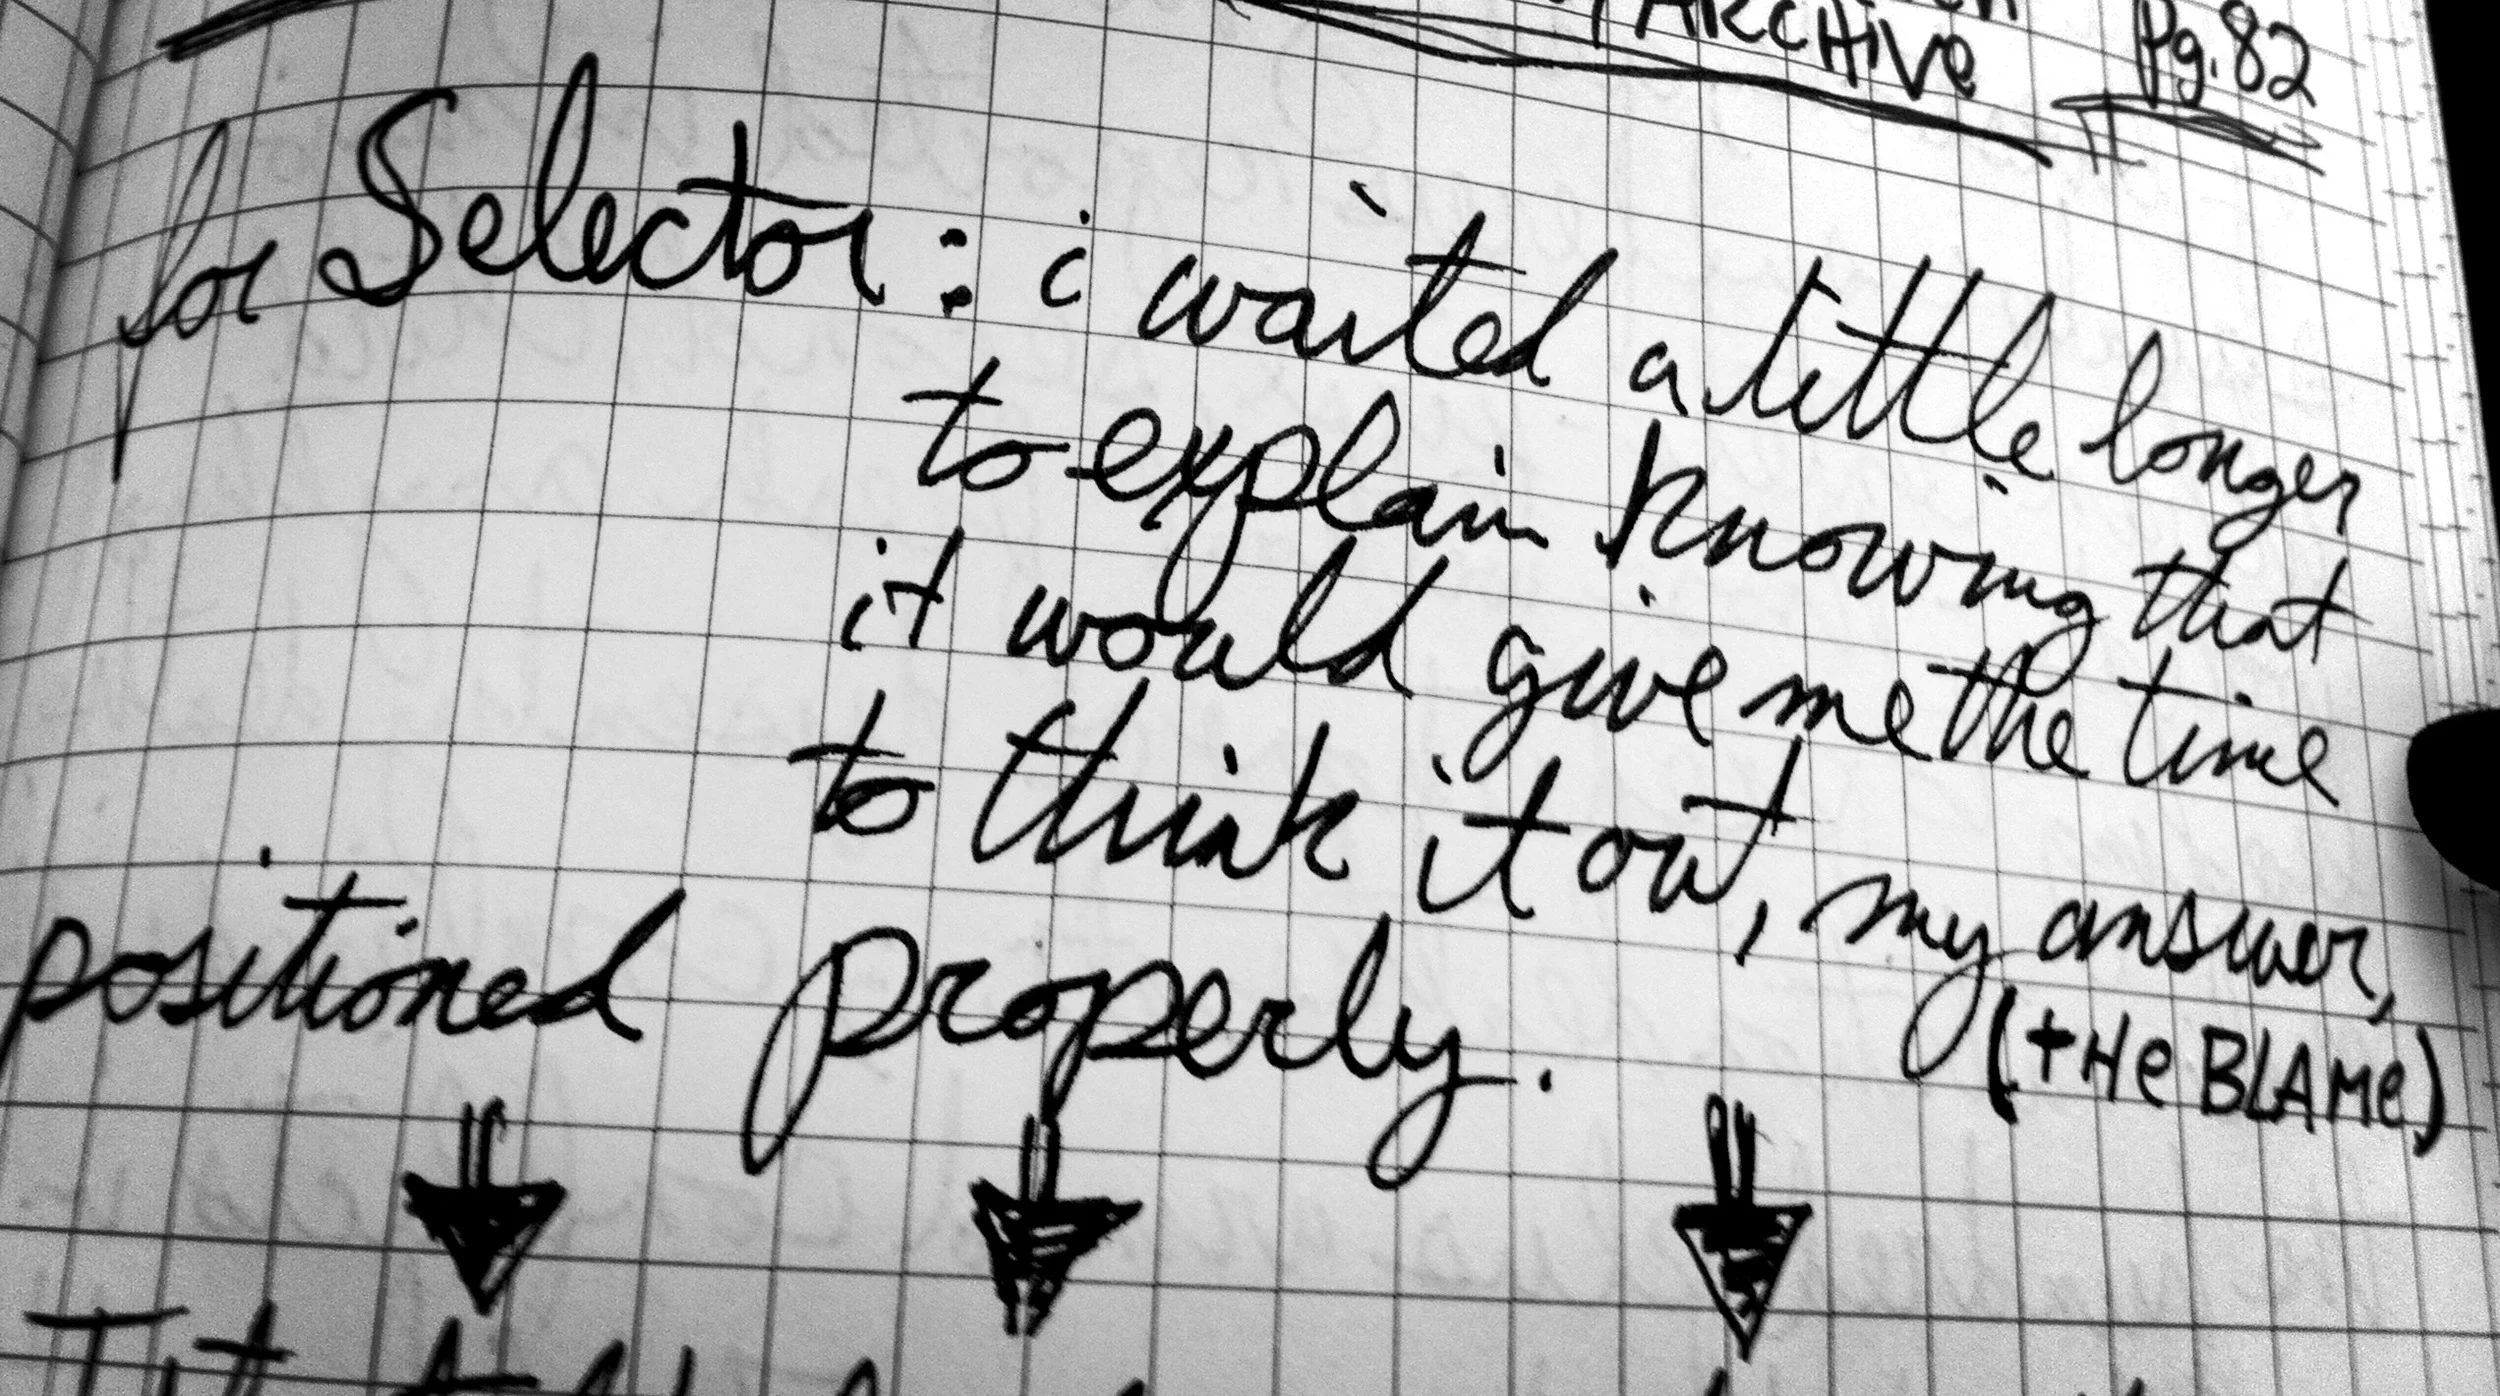 ARCHIVE Pg.82
for Selector: i waited a little longer
to explain knowing that
it would give me the time
to think it out, my answer,
(+He BLAMe)
positioned properly.